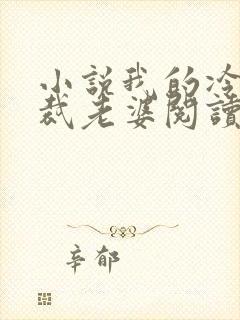 小説我的冷
裁老婆閱讀
辛郁